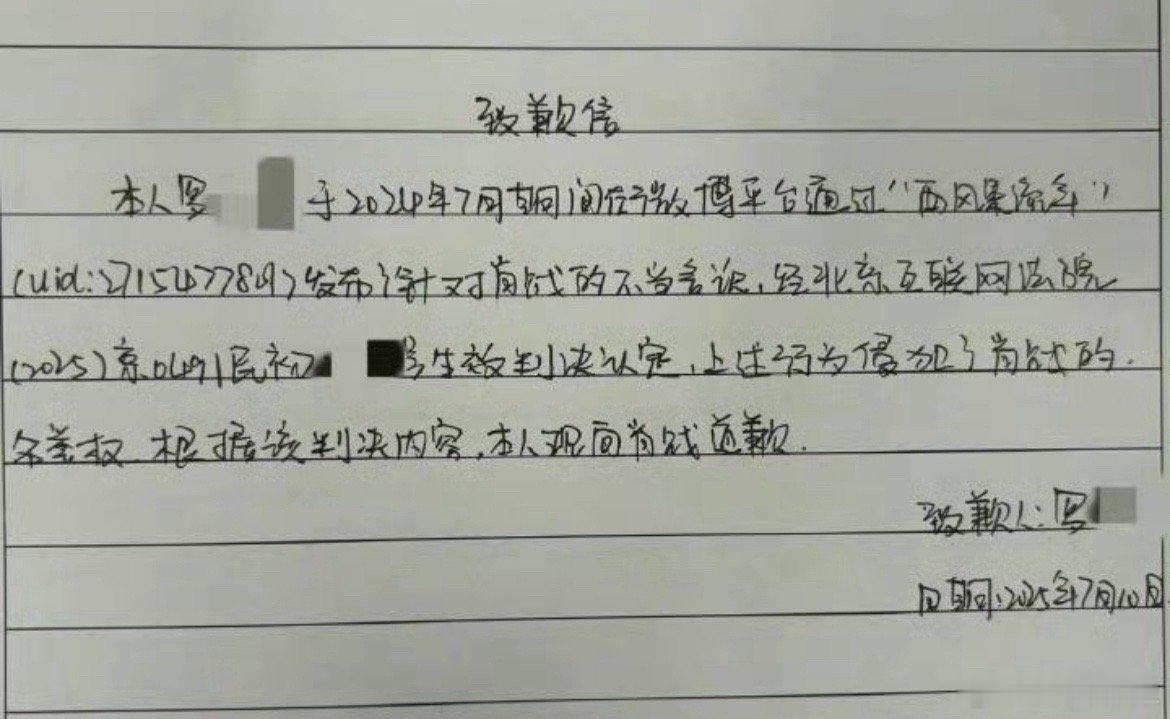 致歉信
本人罗 于2024年7月期间在微博平台通过“西风暴流年”
(uid:2715477849)发布了针对肖战的不当言论,经北京互联网法院
(2025)京0491民初 号生效判决认定,上述行为侵犯了肖战的.
名誉权.根据该判决内容,本人现向肖战道歉.
致歉人:罗
日期:2025年7月10日